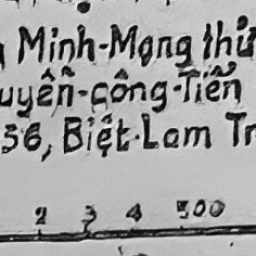 Minh-Mạng thứ
uyễn-công-Tiễn
56, Biệt-Lam Tr
2 3 4 500